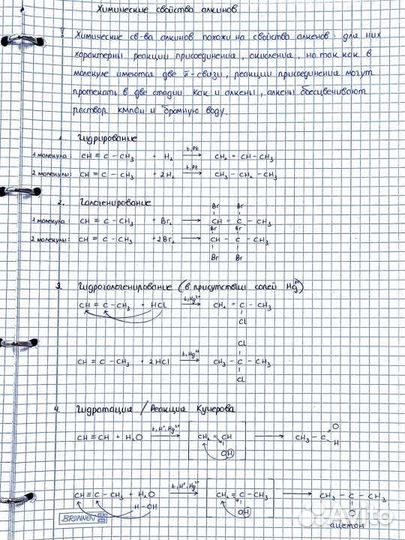 Химические свойства алкинов
Химические св-ва алкинов похожи на свойства алкенов: для них
характерны реакции присоединения, окисления, но так как в
молекуле имеются две π-связи, реакции присоединения могут
протекать в две стадии. Как и алкены, алкены обесцвечивают
раствор KMnO4 и бромную воду.
1. Гидрирование
1 молекула: CH ≡ C - CH3 + H2 → t, Pt CH2 = CH - CH3
2 молекулы: CH ≡ C - CH3 + 2H2 → t, Pt CH3 - CH2 - CH3
2. Галогенирование
Br Br
1 молекула: CH ≡ C - CH3 + Br2 → CH = C - CH3
Br Br
2 молекулы: CH ≡ C - CH3 + 2Br2 → CH - C - CH3
Br Br
3. Гидрогалогенирование (в присутствии солей Hg2+)
CH ≡ C - CH3 + HCl → t, Hg2+ CH2 = C - CH3
Cl
Cl
CH ≡ C - CH3 + 2HCl → t, Hg2+ CH3 - C - CH3
Cl
4. Гидратация / Реакция Кучерова
CH ≡ CH + H2O → t, H+, Hg2+ [CH2 = CH → CH3 - C O
OH H
CH ≡ C - CH3 + H2O → t, H+, Hg2+ [CH2 = C - CH3] → CH3 - C - CH3
H-OH OH O
BRUNNEN ацетон
Avito